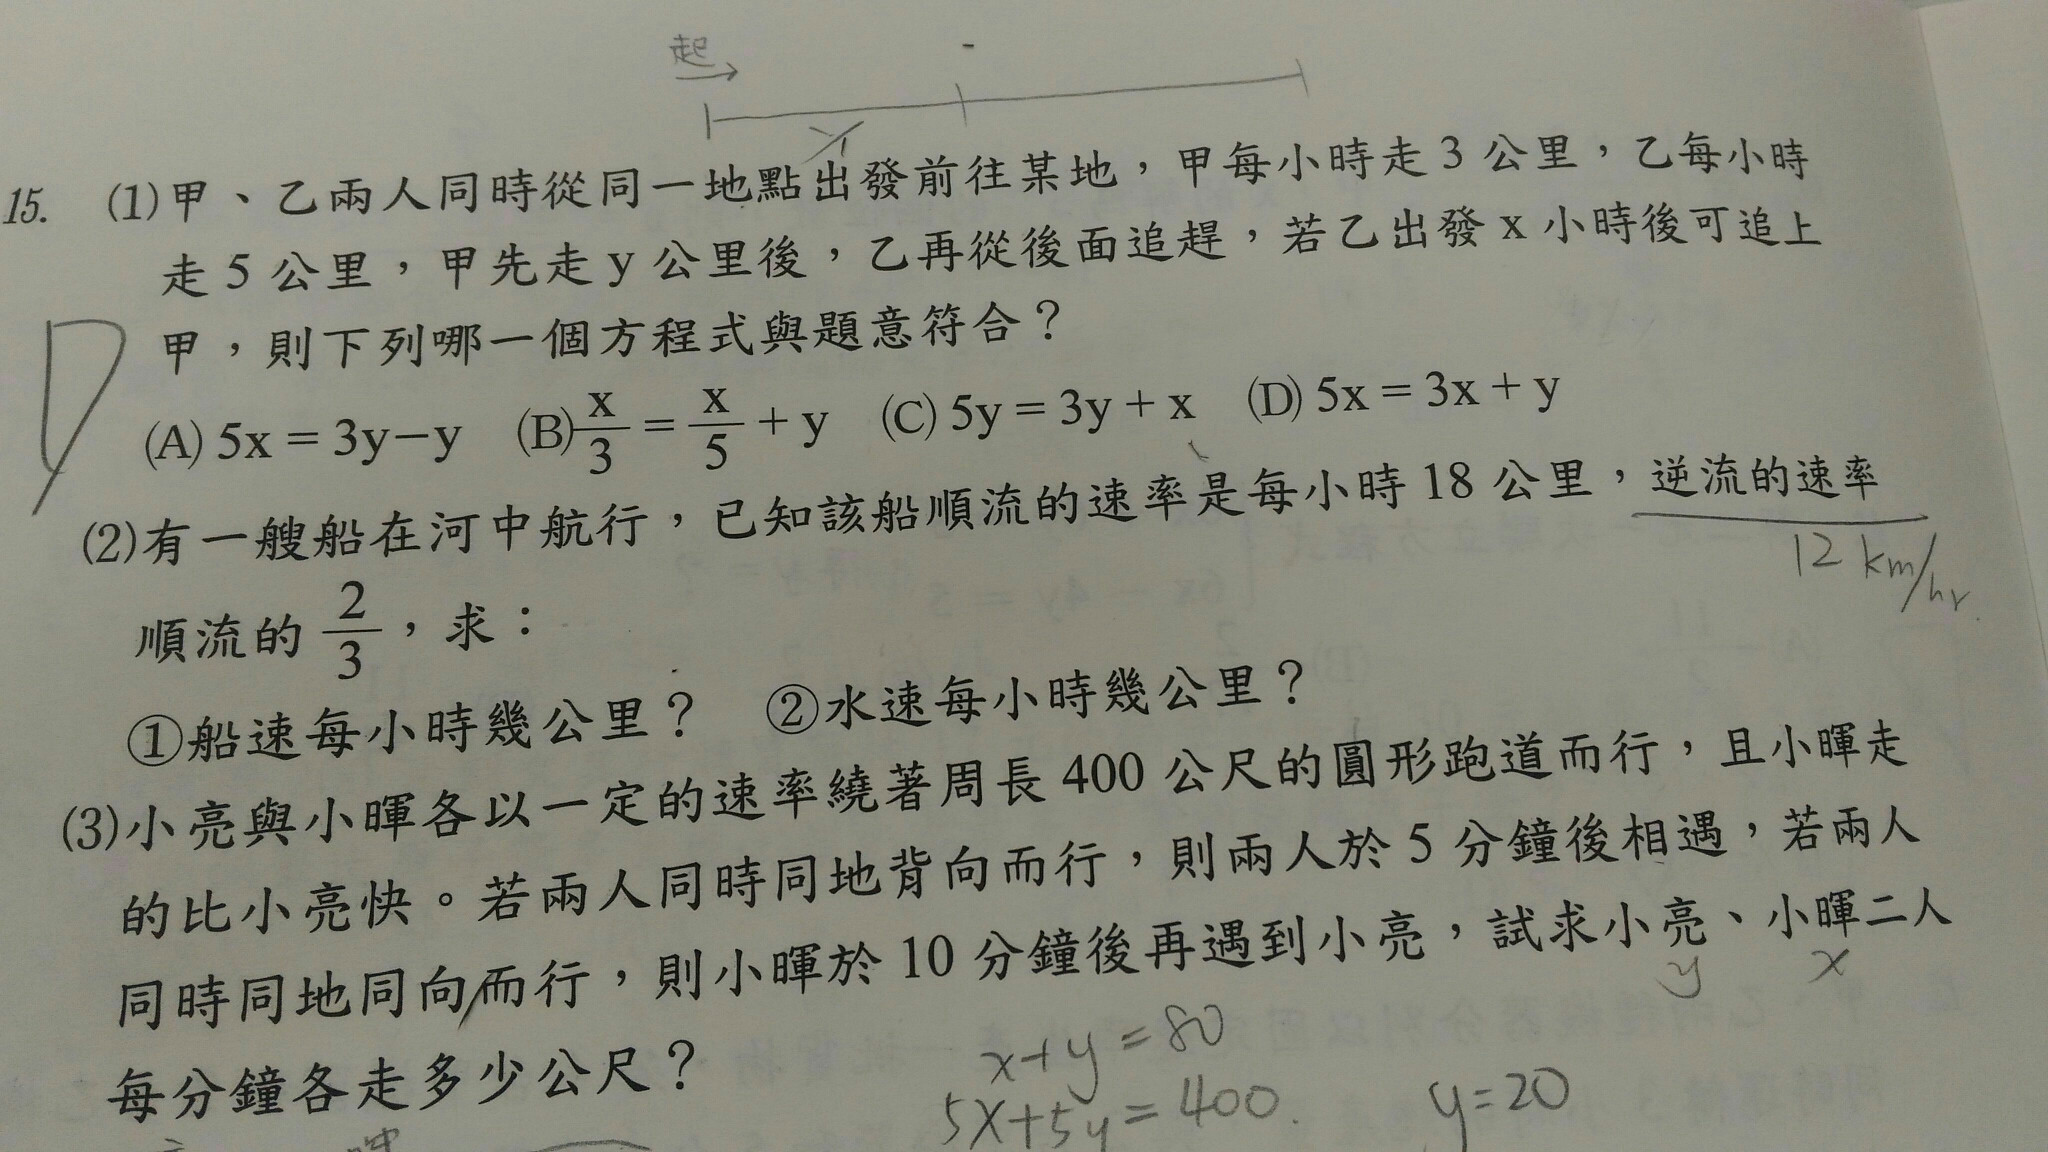 起
15. (1)甲、乙兩人同時從同一地點出發前往某地，甲每小時走3公里，乙每小時
走5公里，甲先走y公里後，乙再從後面追趕，若乙出發x小時後可追上
甲，則下列哪一個方程式與題意符合？
(A) 5x = 3y−y (B) x/3 = x/5 + y (C) 5y = 3y + x (D) 5x = 3x + y
(2)有一艘船在河中航行，已知該船順流的速率是每小時18公里，逆流的速率
12 km/hr
順流的 2/3，求：
①船速每小時幾公里？ ②水速每小時幾公里？
(3)小亮與小暉各以一定的速率繞著周長400公尺的圓形跑道而行，且小暉走
的比小亮快。若兩人同時同地背向而行，則兩人於5分鐘後相遇，若兩人
同時同地同向而行，則小暉於10分鐘後再遇到小亮，試求小亮、小暉二人
y x
每分鐘各走多少公尺？
x+y=80
5x+5y=400. y=20